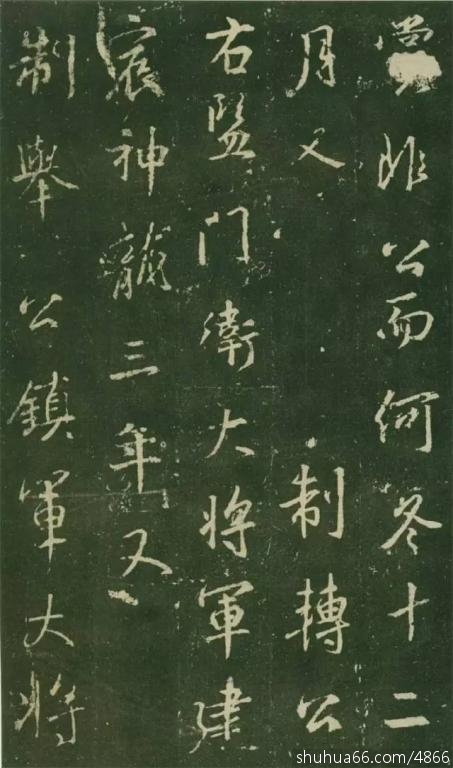 非公而何冬十二
月又 制轉公
右監門衛大將軍建
宸神龍三年又
制舉公鎮軍大將
shuhua66.com/4866